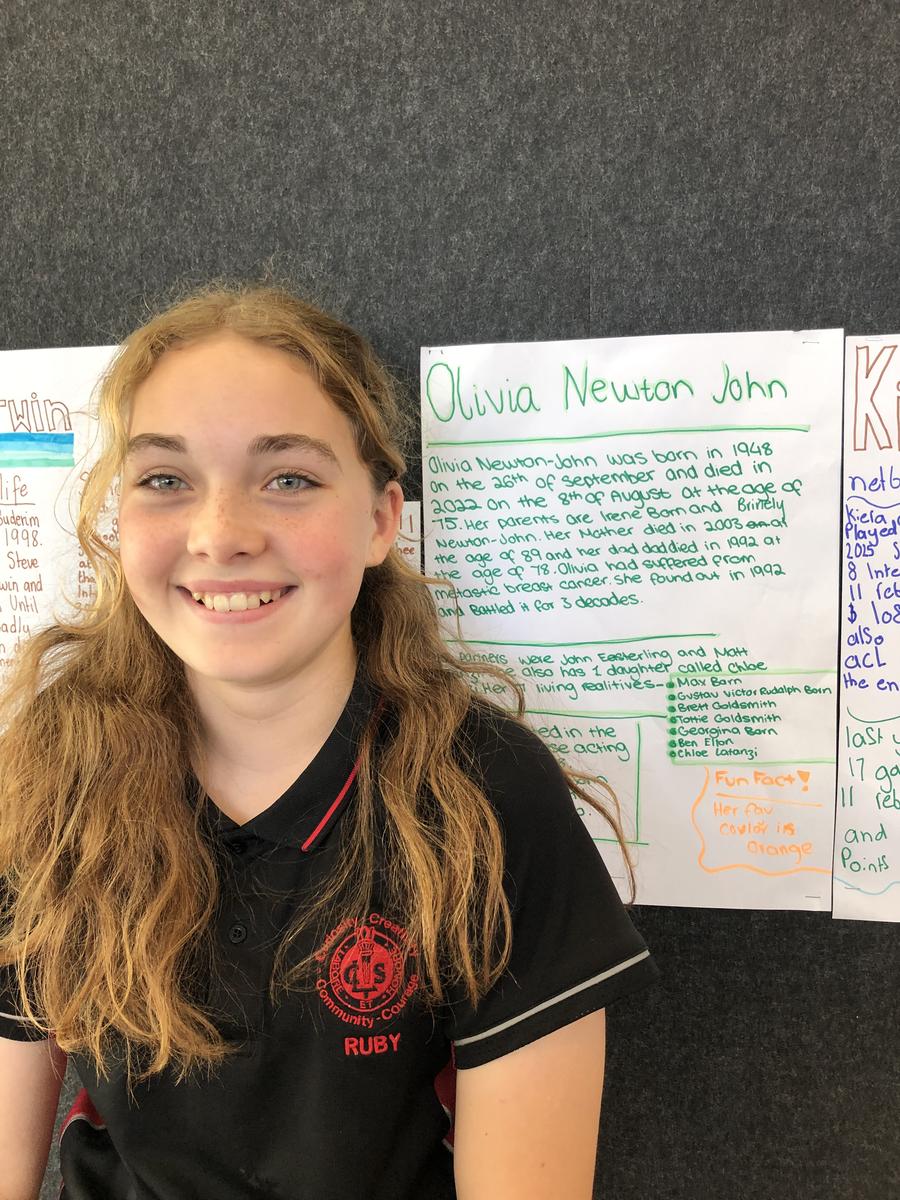 rwin
life
Buderim
1998.
Steve
rwin and
Until
adly
Olivia Newton John
Olivia Newton-John was born in 1948
on the 26th of September and died in
2022 on the 8th of August at the age of
75. Her parents are Irene Born and Brinely
Newton-John. Her Mother died in 2003 at
the age of 89 and her dad daddied in 1992 at
the age of 78. Olivia had suffered from
metastic breast cancer. She found out in 1992
and Battled it for 3 decades.
partners were John Easterling and Matt
also has 1 daughter called Chloe
Her living realitives-
Max Barn
Gustav Victor Rudalph Born
Brett Goldsmith
Tottie Goldsmith
Georgina Barn
Ben Elton
Chloe Latanzi
ed in the
se acting
Fun Fact!
Her fav
coulor is
Orange
Ki
netb
Kiera
Played
2025 S
8 Inte
11 reb
$ 108
also
acl
the en
last y
17 ga
11 reb
and
Points
Curiosity - Creativity
LABORE ET HONORE
Community - Courage
RUBY